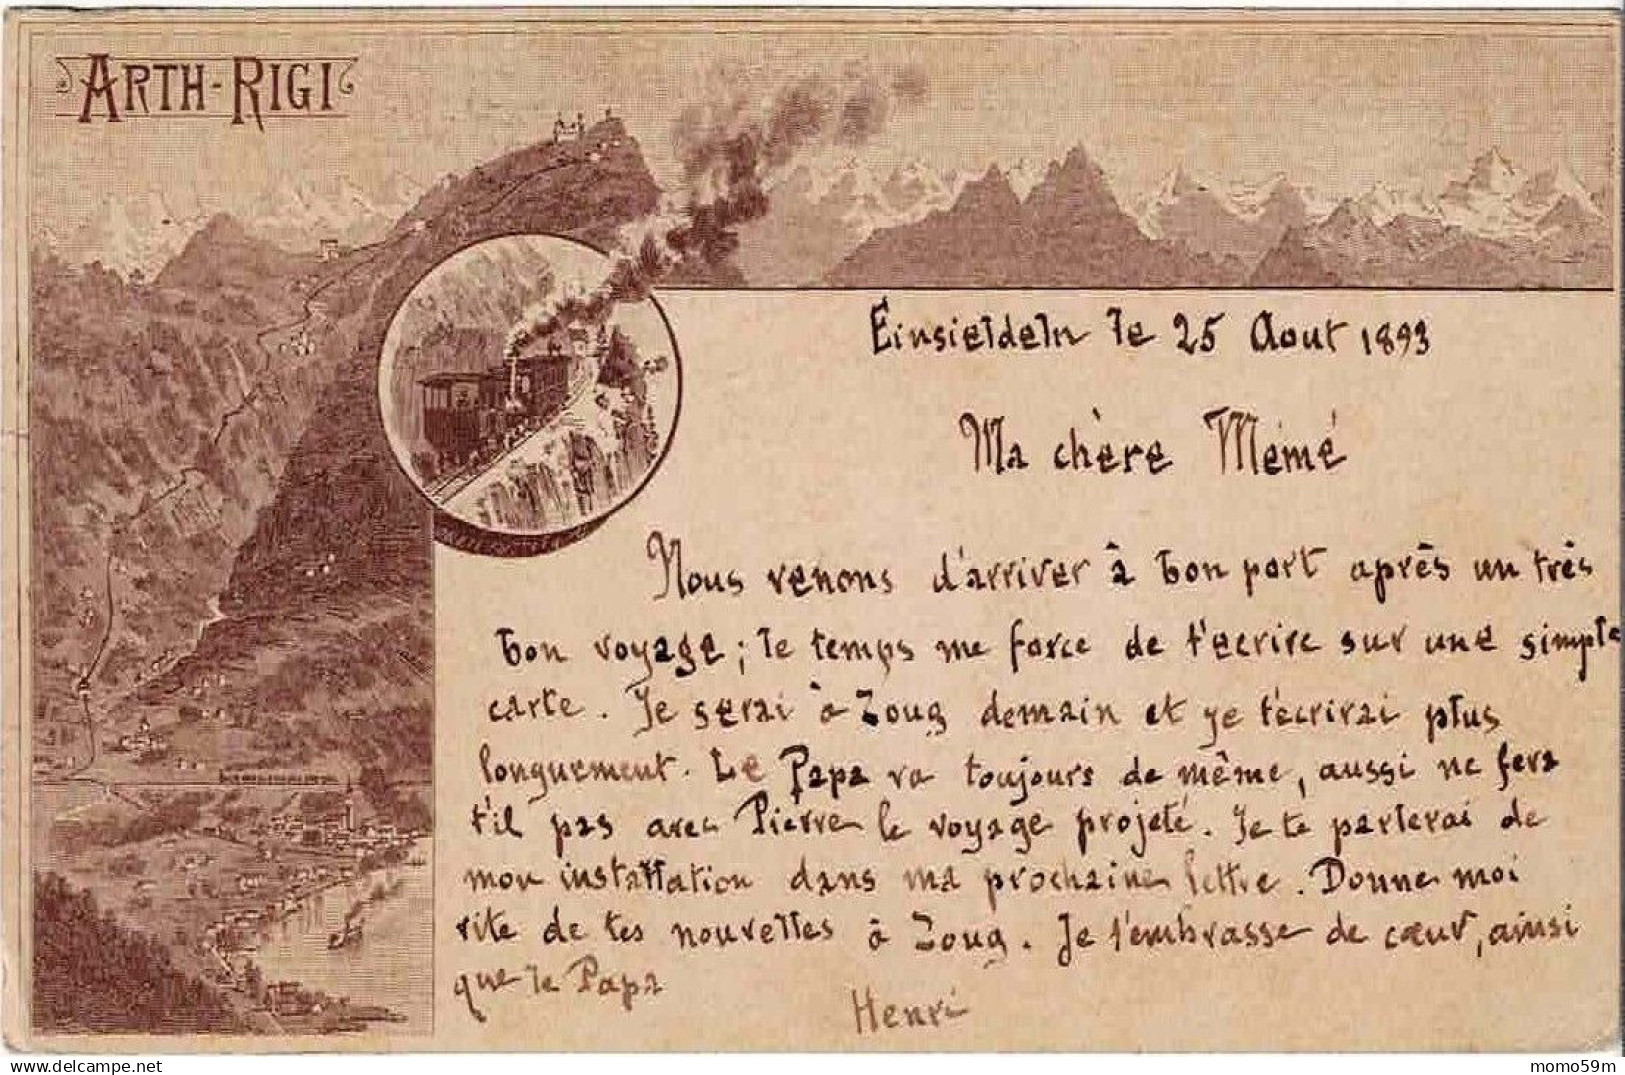 ARTH-RIGI
Einsiedeln le 25 Aout 1893
Ma chère Mémé
Nous venons d'arriver à bon port après un très
bon voyage ; le temps me force de t'écrire sur une simple
carte. Je serai à Zoug demain et je t'écrirai plus
longuement. Le Papa va toujours de même, aussi ne fera
t'il pas avec Pierre le voyage projeté. Je te parlerai de
mon installation dans ma prochaine lettre. Donne moi
vite de tes nouvelles à Zoug. Je t'embrasse de cœur, ainsi
que le Papa
Henri
momo59m